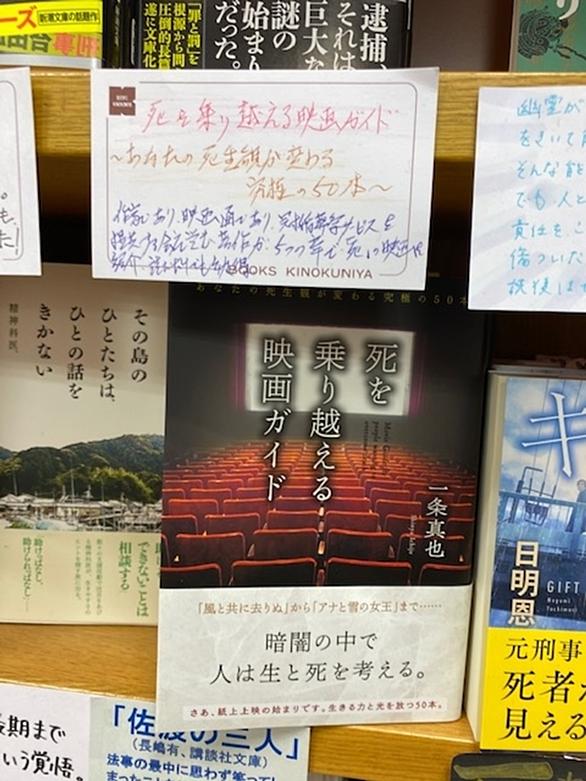 逮捕、
それは
巨大な
謎の
始まり
だった。
『罪と罰』を
根源から問う
圧倒的長篇
遂に文庫化
新潮文庫の話題作
ーズ
死を乗り越える映画ガイド
〜あなたの死生観が変わる
究極の50本〜
作家であり、映画通であり、冠婚葬祭サービスを
提供する会社を営む著作が、5つの章で「死」の映画を
紹介。
BOOKS KINOKUNIYA
幽霊が
をきいて
そんな能
でも、人と
責任を、こ
傷ついた
検後は
あなたの死生観が変わる究極の50本
死を
乗り越える
映画ガイド
一条真也
「風と共に去りぬ」から「アナと雪の女王」まで……
暗闇の中で
人は生と死を考える。
さあ、紙上上映の始まりです。生きる力と光を放つ50本。
その島の
ひとたちは、
ひとの話を
きかない
精神科医、
できないことは
相談する
助けっぱなし、
助けられっぱなし
キ
日明恩
GIFT
元刑事
死者が
見える
長期まで
いう覚悟。
「佐渡の三人」
(長嶋有、講談社文庫)
法事の最中に思わず笑って